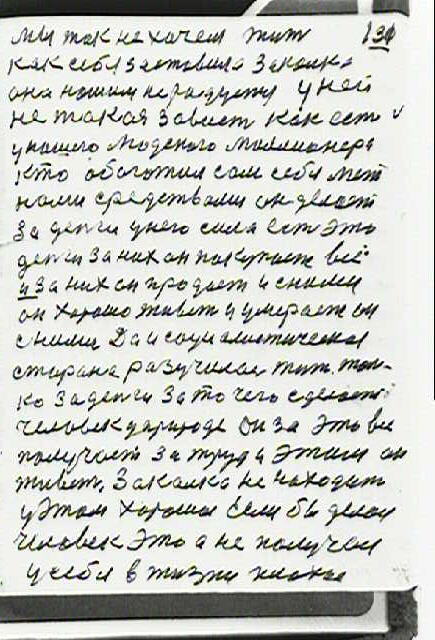 131
мы так не хочем жит
как себя заставила закалка
она нашим не радуется у ней
не такая завист как есть
у нашего людского миллионера
кто обогатил сам себя
ними средствами он делает
за деньги у него сила ест это
деньги за них он покупает всё
и за них он продает и сними
он хорошо живет и умирает он
сними Да и социалистическая
старана разучилас жит. тол-
ко за денги За то чего сделает
человек у природе он за это все
получает за труд и этим он
живет. Закалка не находит
у этом хорошая Если бы делал
человек это а не получал
у себя в жизни плохое